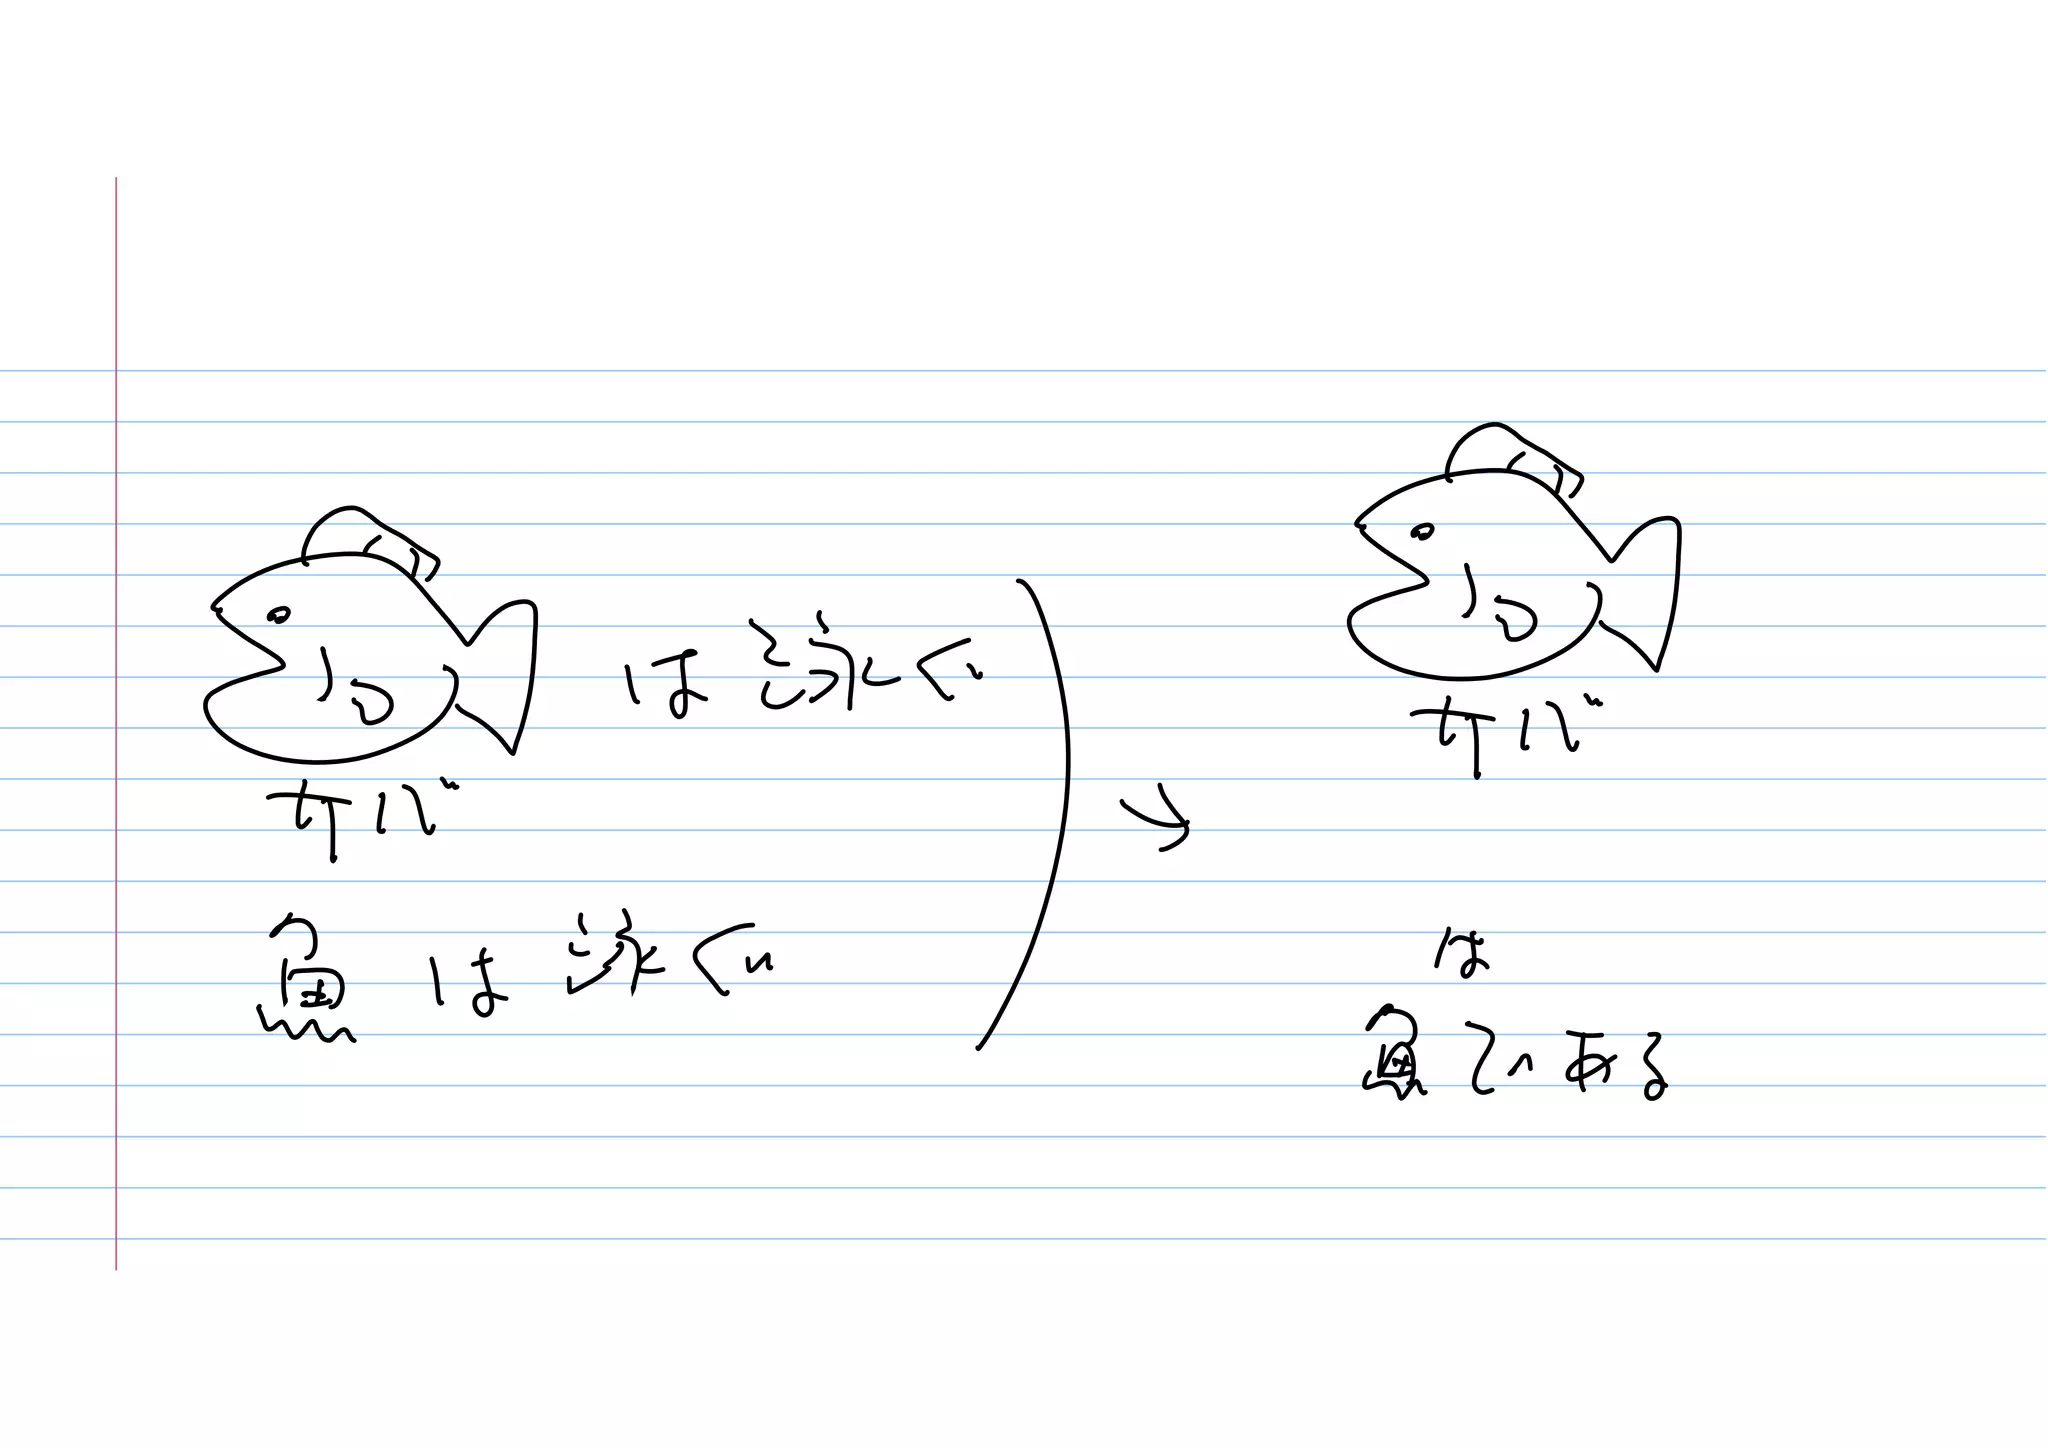 は泳ぐ
サバ
魚は泳ぐ
サバ
は
魚である